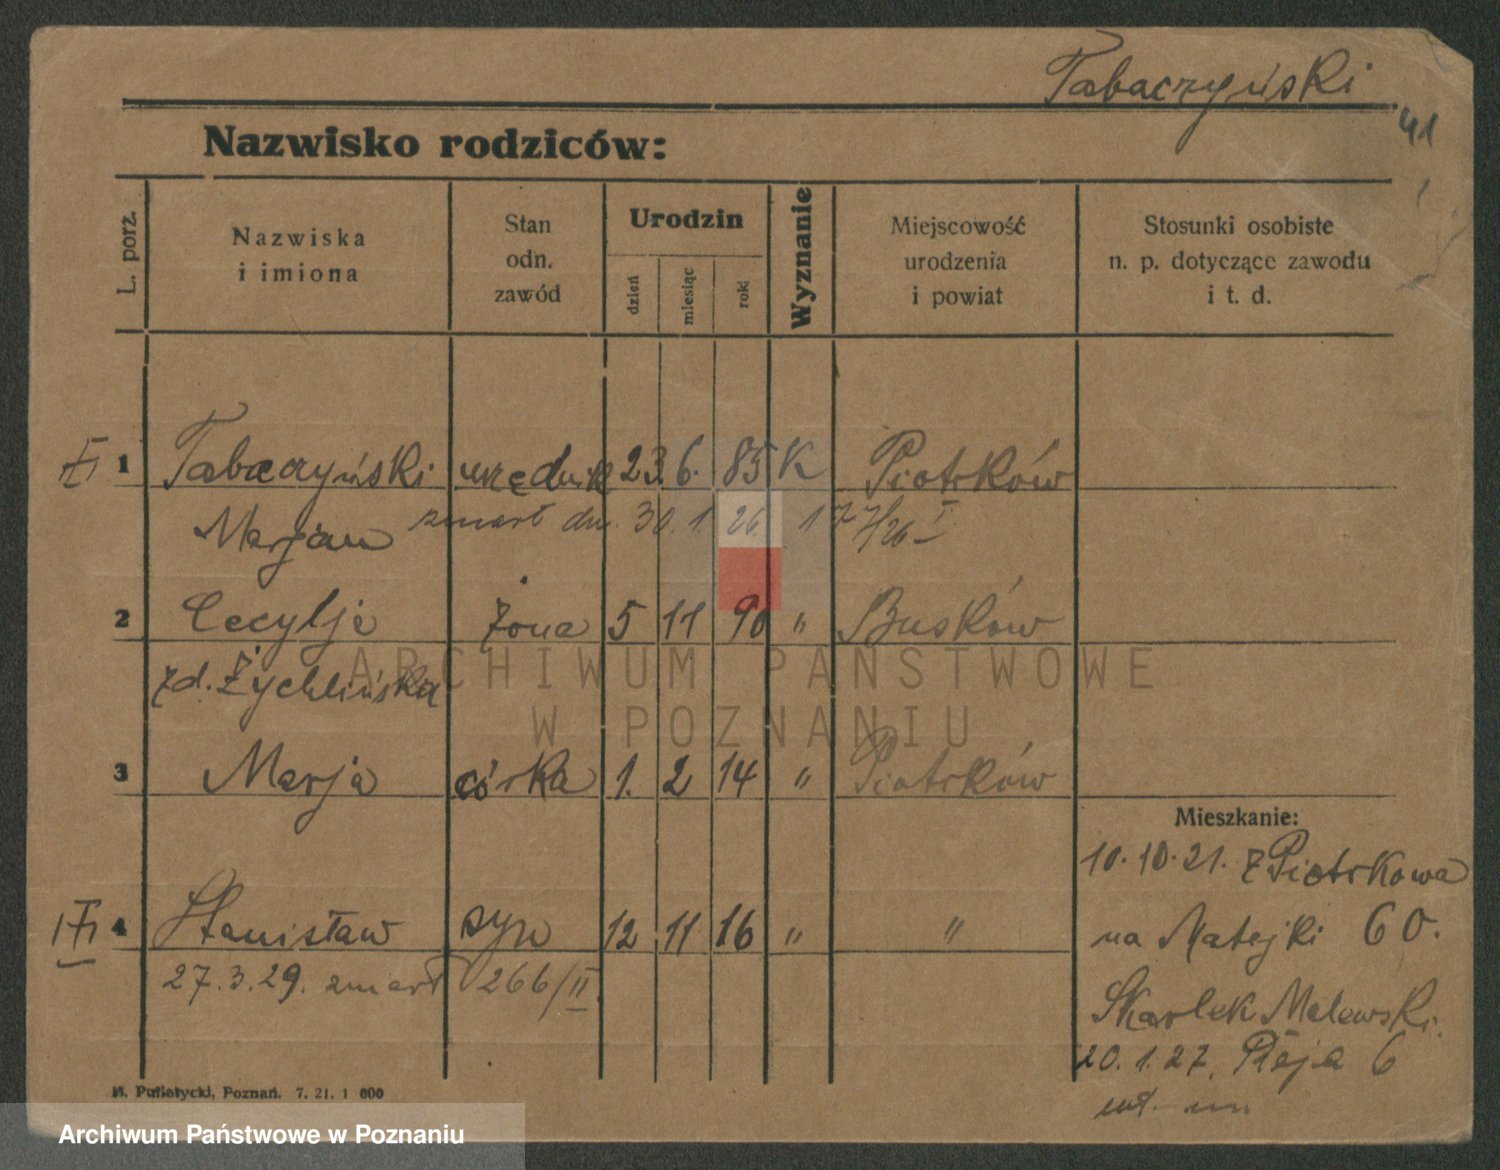 Tabaczyński
41
Nazwisko rodziców:
L. porz.
Nazwiska
i imiona
Stan
odn.
zawód
Urodzin
dzień
miesiąc
rok
Wyznanie
Miejscowość
urodzenia
i powiat
Stosunki osobiste
n. p. dotyczące zawodu
i t. d.
1 Tabaczyński urzędnik 23. 6. 85 K Piotrków
Marjan zmarł dn. 30. 1. 26.
2 Cecylja żona 5 11 90 " Busków
zd. Żychlińska
3 Marja córka 1. 2 14 " Piotrków
Mieszkanie:
10. 10. 21. z Piotrkowa
4 Stanisław syn 12 11 16 " "
na Matejki 60.
27. 3. 29. zmarł 266/II
Malewski.
20. 1. 27. 6
Poznań. 7. 21. 1 000
ARCHIWUM PAŃSTWOWE
W POZNANIU
Archiwum Państwowe w Poznaniu